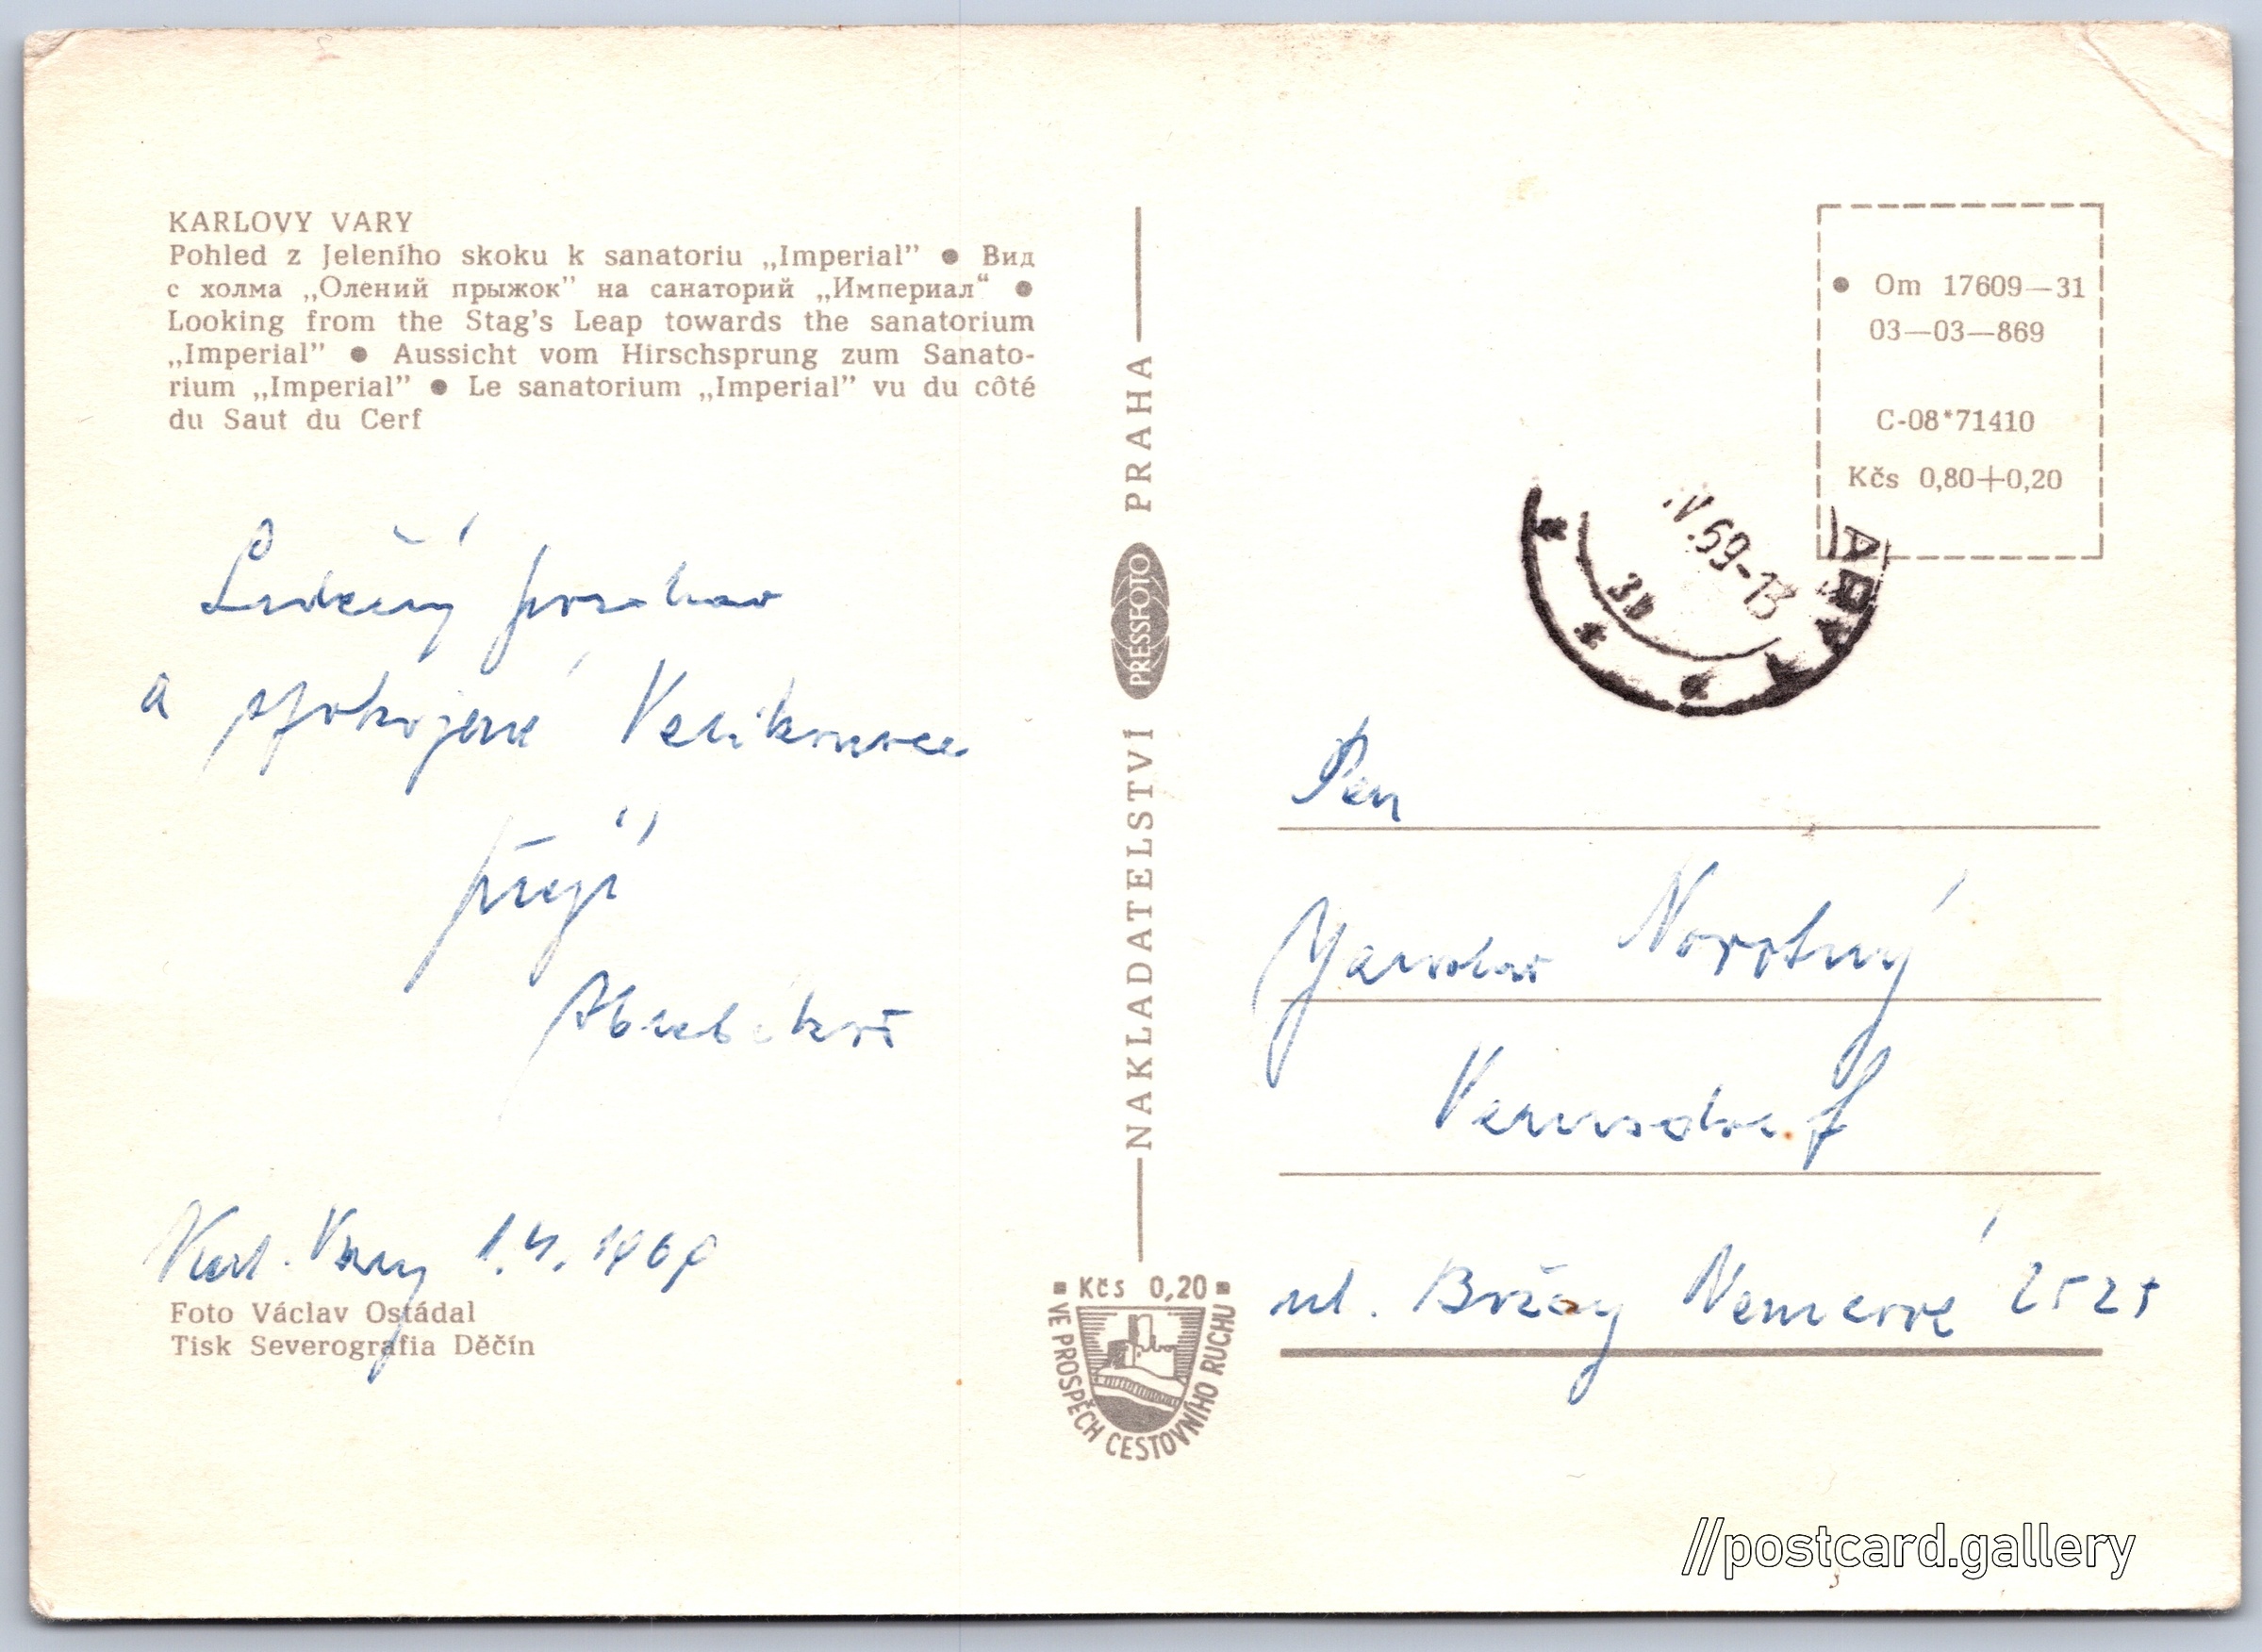 KARLOVY VARY
Pohled z Jeleního skoku k sanatoriu „Imperial” ● Вид
с холма „Олений прыжок” на санаторий „Империал“ ●
Looking from the Stag's Leap towards the sanatorium
„Imperial” ● Aussicht vom Hirschsprung zum Sanato-
rium „Imperial” ● Le sanatorium „Imperial” vu du côté
du Saut du Cerf
Srdečný pozdrav
a spokojené Velikonoce
přejí
Karl. Vary 1.4.1969
Foto Václav Ostádal
Tisk Severografia Děčín
NAKLADATELSTVÍ PRESSFOTO PRAHA
Kčs 0,20
VE PROSPĚCH CESTOVNÍHO RUCHU
● Om 17609—31
03—03—869
C-08*71410
Kčs 0,80+0,20
.IV.69-13
VARY
Pan
Jaroslav Novotný
Varnsdorf
ul. Boženy Nemcové 2525
//postcard.gallery